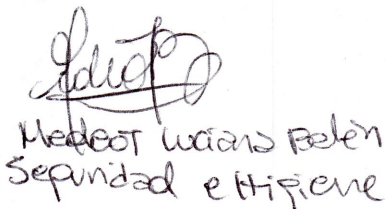 Medeot Luciana Belén
Seguridad e Higiene